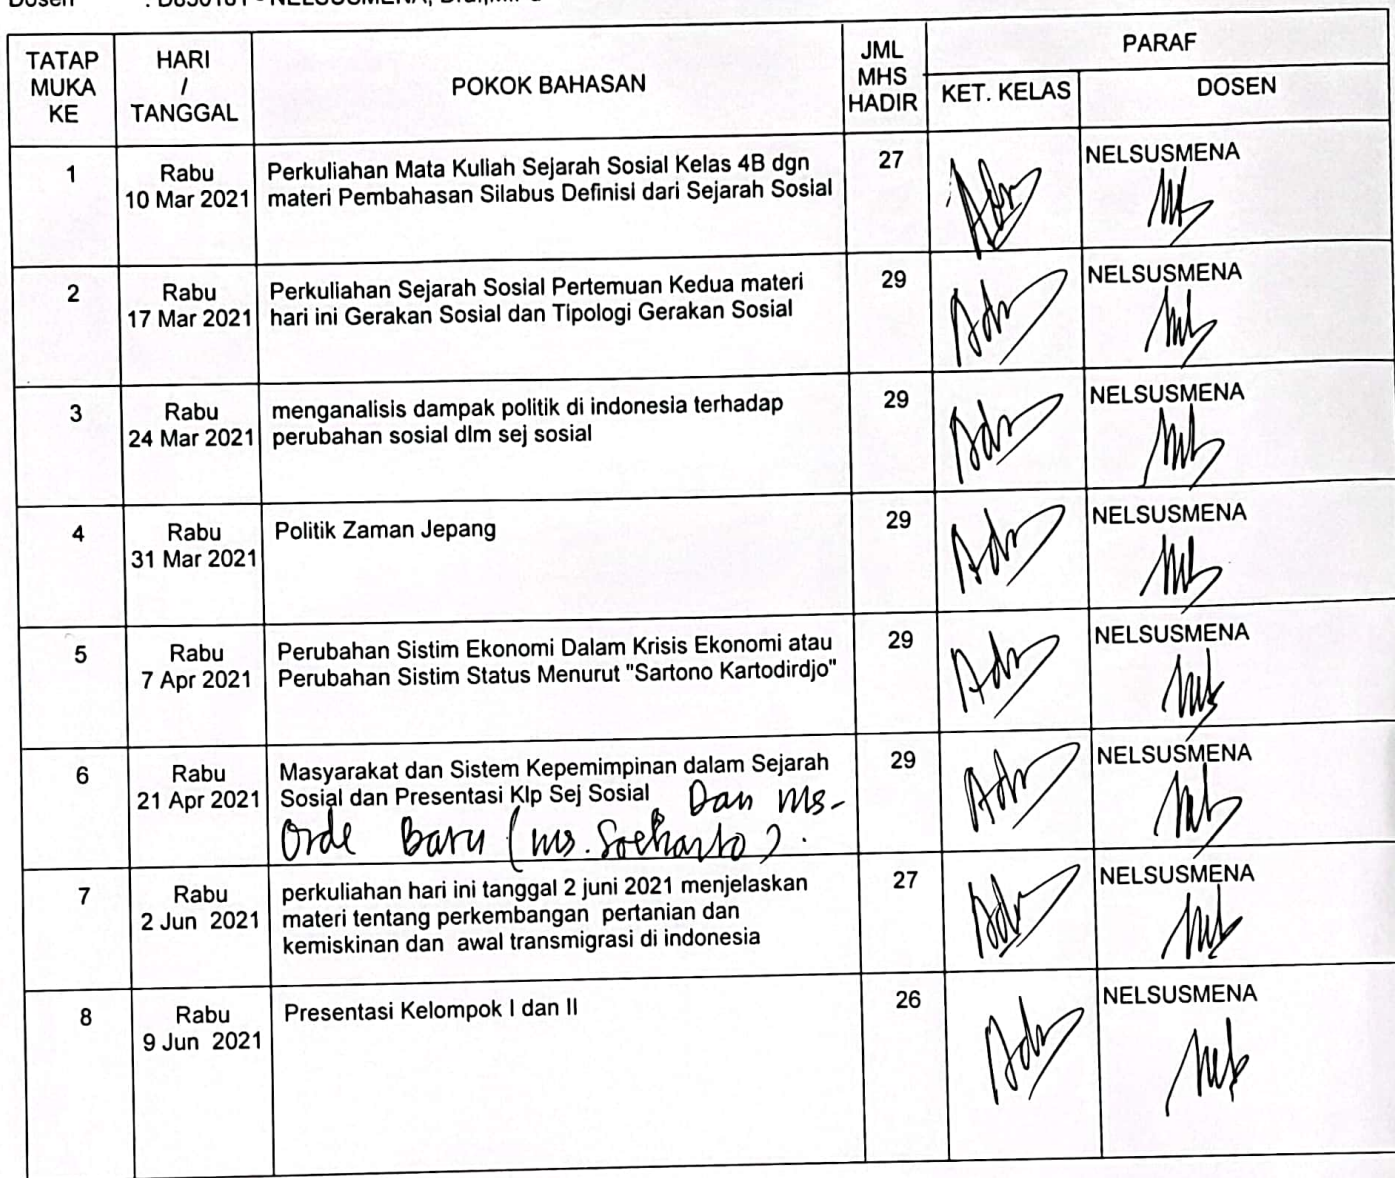 TATAP MUKA KE
HARI / TANGGAL
POKOK BAHASAN
JML MHS HADIR
PARAF
KET. KELAS
DOSEN
1
Rabu
10 Mar 2021
Perkuliahan Mata Kuliah Sejarah Sosial Kelas 4B dgn
materi Pembahasan Silabus Definisi dari Sejarah Sosial
27
NELSUSMENA
2
Rabu
17 Mar 2021
Perkuliahan Sejarah Sosial Pertemuan Kedua materi
hari ini Gerakan Sosial dan Tipologi Gerakan Sosial
29
NELSUSMENA
3
Rabu
24 Mar 2021
menganalisis dampak politik di indonesia terhadap
perubahan sosial dlm sej sosial
29
NELSUSMENA
4
Rabu
31 Mar 2021
Politik Zaman Jepang
29
NELSUSMENA
5
Rabu
7 Apr 2021
Perubahan Sistim Ekonomi Dalam Krisis Ekonomi atau
Perubahan Sistim Status Menurut "Sartono Kartodirdjo"
29
NELSUSMENA
6
Rabu
21 Apr 2021
Masyarakat dan Sistem Kepemimpinan dalam Sejarah
Sosial dan Presentasi Klp Sej Sosial Dan ms-
Orde Baru (ms. Soeharto).
29
NELSUSMENA
7
Rabu
2 Jun 2021
perkuliahan hari ini tanggal 2 juni 2021 menjelaskan
materi tentang perkembangan pertanian dan
kemiskinan dan awal transmigrasi di indonesia
27
NELSUSMENA
8
Rabu
9 Jun 2021
Presentasi Kelompok I dan II
26
NELSUSMENA